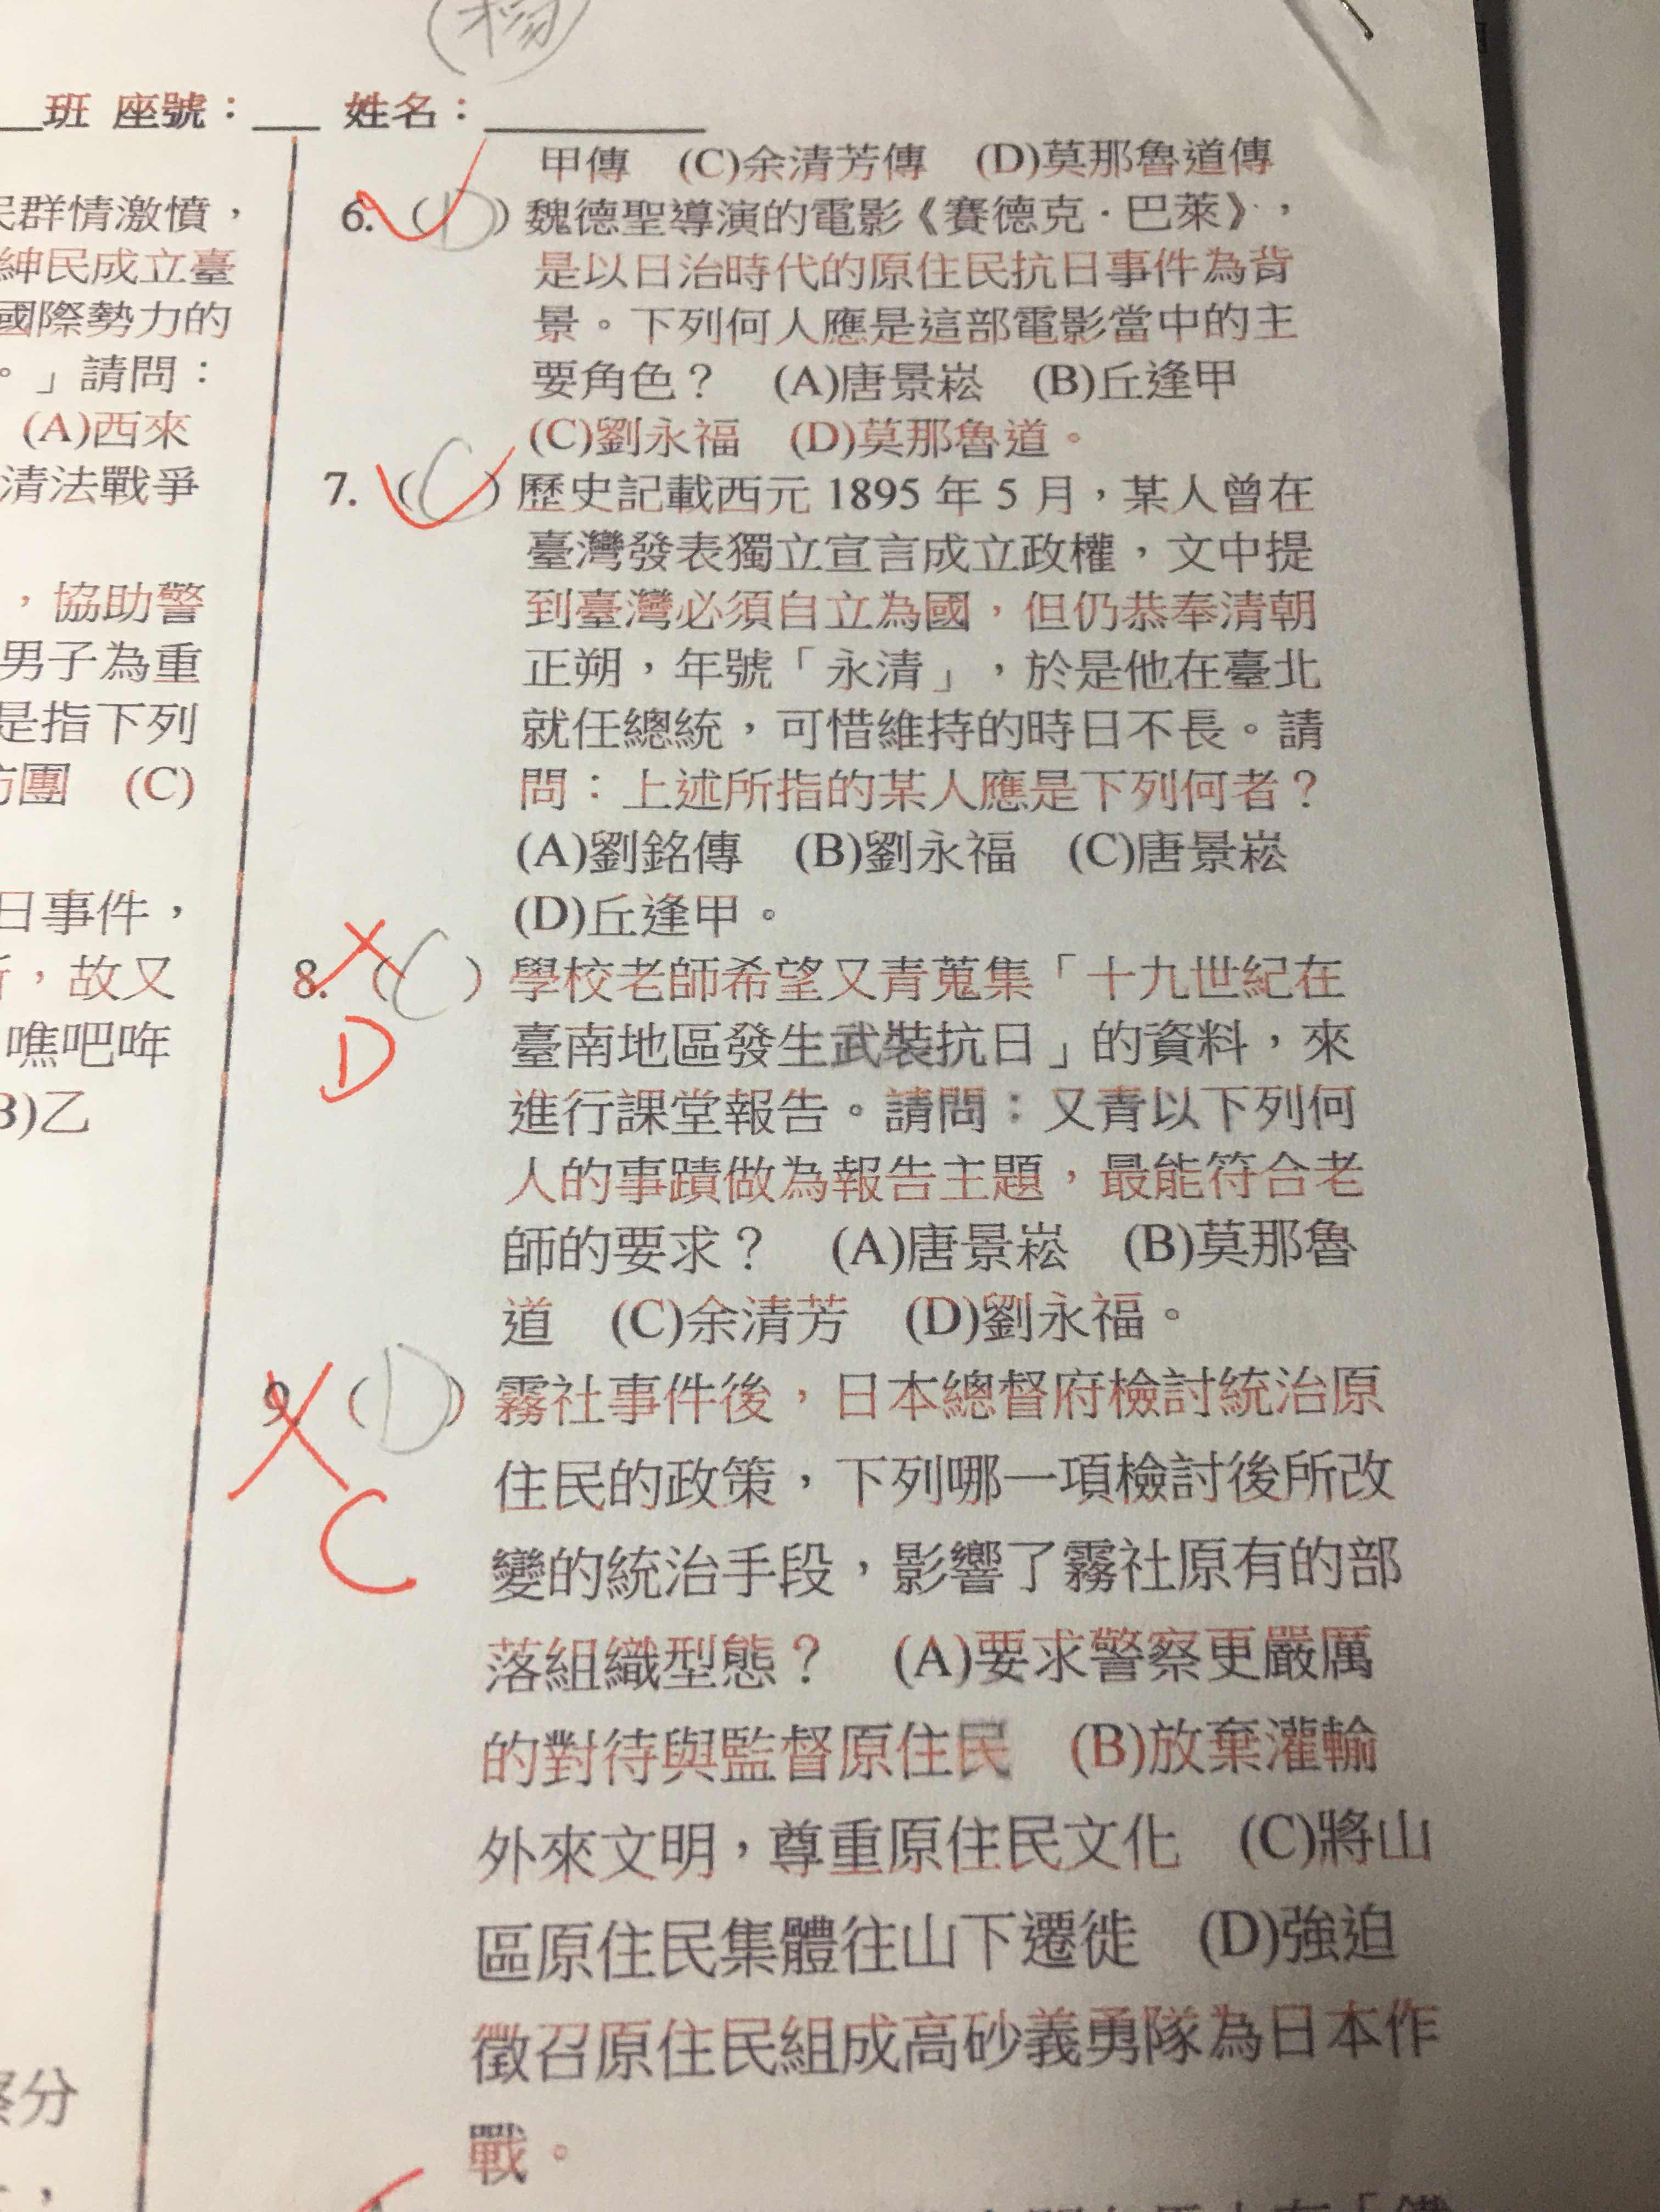 楊
班 座號： 姓名：
民群情激憤，
紳民成立臺
國際勢力的
。」請問：
(A)西來
清法戰爭
，協助警
男子為重
是指下列
防團 (C)
日事件，
，故又
噍吧哖
B)乙
察分
甲傳 (C)余清芳傳 (D)莫那魯道傳
6. (D) 魏德聖導演的電影《賽德克‧巴萊》，
是以日治時代的原住民抗日事件為背
景。下列何人應是這部電影當中的主
要角色？ (A)唐景崧 (B)丘逢甲
(C)劉永福 (D)莫那魯道。
7. (C) 歷史記載西元 1895 年 5 月，某人曾在
臺灣發表獨立宣言成立政權，文中提
到臺灣必須自立為國，但仍恭奉清朝
正朔，年號「永清」，於是他在臺北
就任總統，可惜維持的時日不長。請
問：上述所指的某人應是下列何者？
(A)劉銘傳 (B)劉永福 (C)唐景崧
(D)丘逢甲。
8. (C) 學校老師希望又青蒐集「十九世紀在
D
臺南地區發生武裝抗日」的資料，來
進行課堂報告。請問：又青以下列何
人的事蹟做為報告主題，最能符合老
師的要求？ (A)唐景崧 (B)莫那魯
道 (C)余清芳 (D)劉永福。
9. (D) 霧社事件後，日本總督府檢討統治原
住民的政策，下列哪一項檢討後所改
C
變的統治手段，影響了霧社原有的部
落組織型態？ (A)要求警察更嚴厲
的對待與監督原住民 (B)放棄灌輸
外來文明，尊重原住民文化 (C)將山
區原住民集體往山下遷徙 (D)強迫
徵召原住民組成高砂義勇隊為日本作
戰。